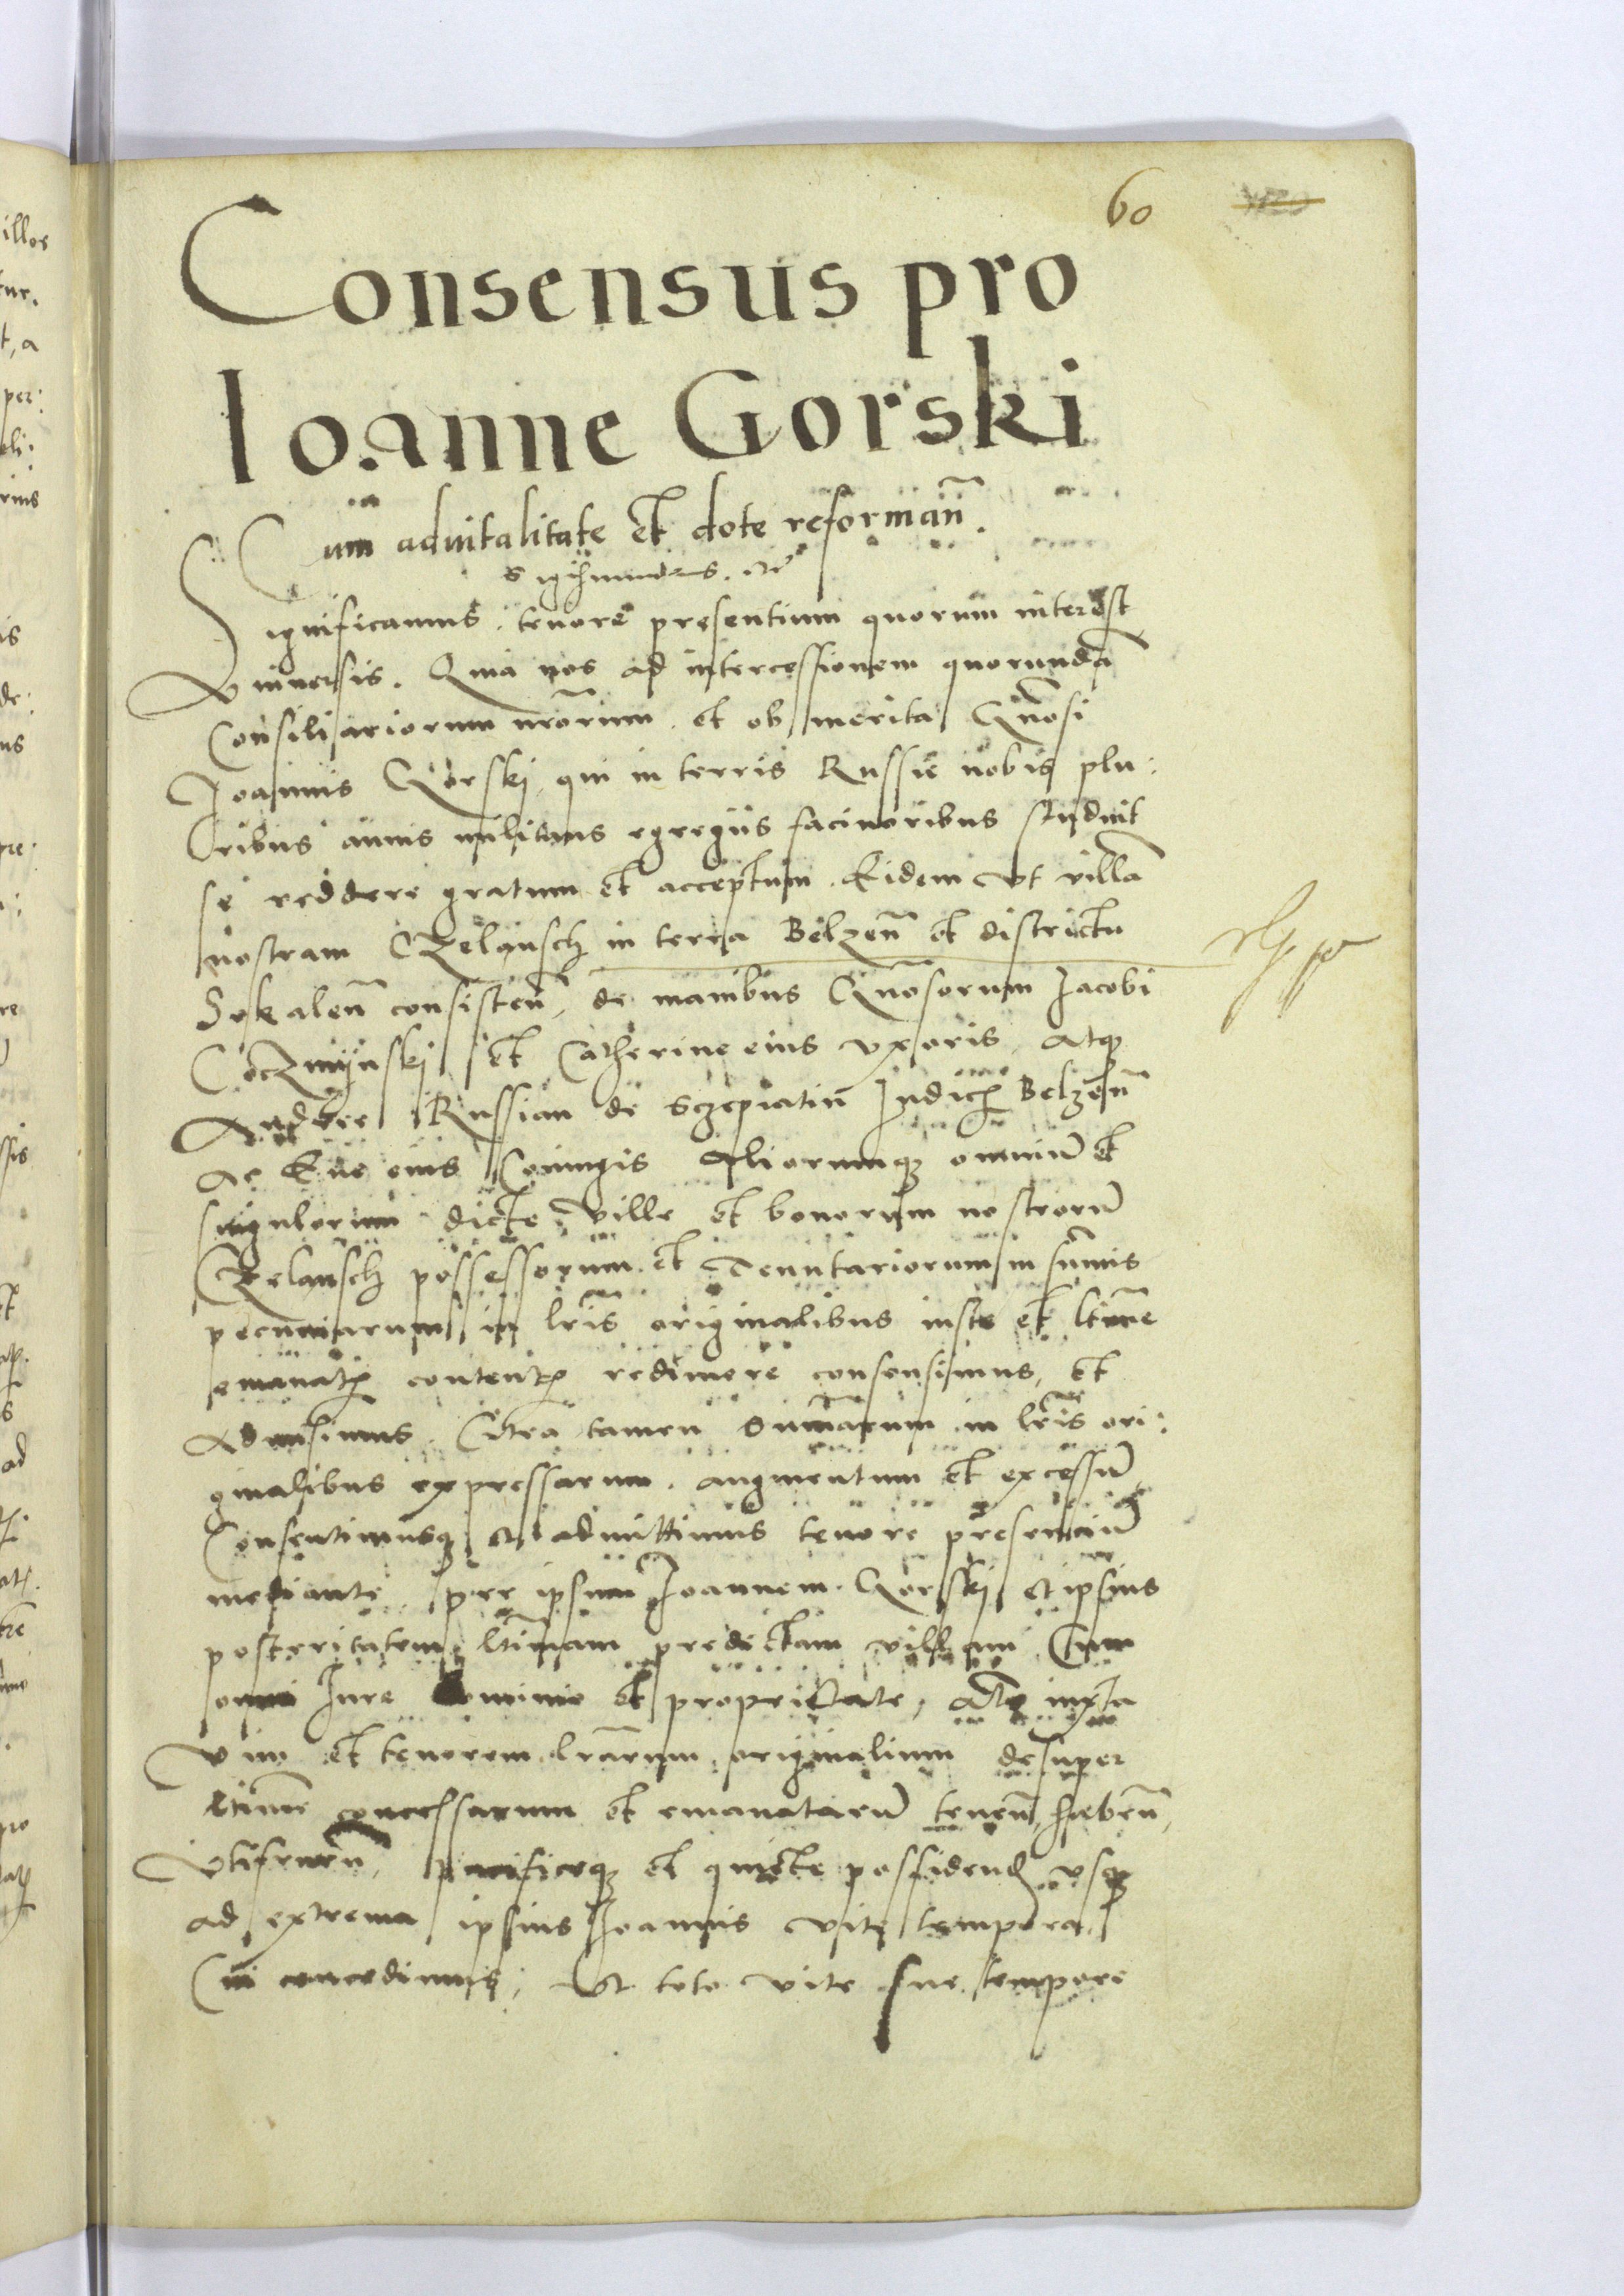 60
Consensus pro
Ioanne Gorski
Cum aduitalitate et dote reformañ.
Sigismundus. etc
Significamus. tenore presentium quorum interest
Vniuersis. Quia nos ad intercessionem quorundã
Consiliariorum nrorum. et ob merita Gnosi
Joannis Gorski qui in terris Russie nobis plu:
ribus annis militans egregijs facinoribus studuit
se reddere gratum et acceptum. Eidem vt villã
nostram Czelansch in terra Belzeñ et districtu
Sokaleñ consisteñ, de manibus Gnosorum Jacobi
et Catherine eius vxoris, Atq
Andree Russian de Sczepiatin Judicis Belzeñ
Ac Eue eius Coniugis Aliorumq omniũ et
singulorum dicte ville et bonorum nostrorũ
Czelansch possessorum et Tenutariorum in sumis
pecuniarum in lris originalibus iuste et ltime
emanatis contentis redimere consensimus, et
Admisimus. Citra tamen Sumarum in lris ori:
ginalibus expressarum. augmentum et excessũ
Consentimusq et admittimus tenore presenciũ
mediante per ipsum Joannem Gorski et ipsius
posteritatem ltimam predictam villam Cum
omni Jure dominio et proprietate, Atq iuxta
vim et tenorem lrarum originalium desuper
ltime concessarum et emanatarũ teneñ, habeñ,
Vtifrueñ, pacificeq et quiete possidend vsq
ad extrema ipsius Joannis vite tempora
Cui concedimus, Vt toto vite sue tempore